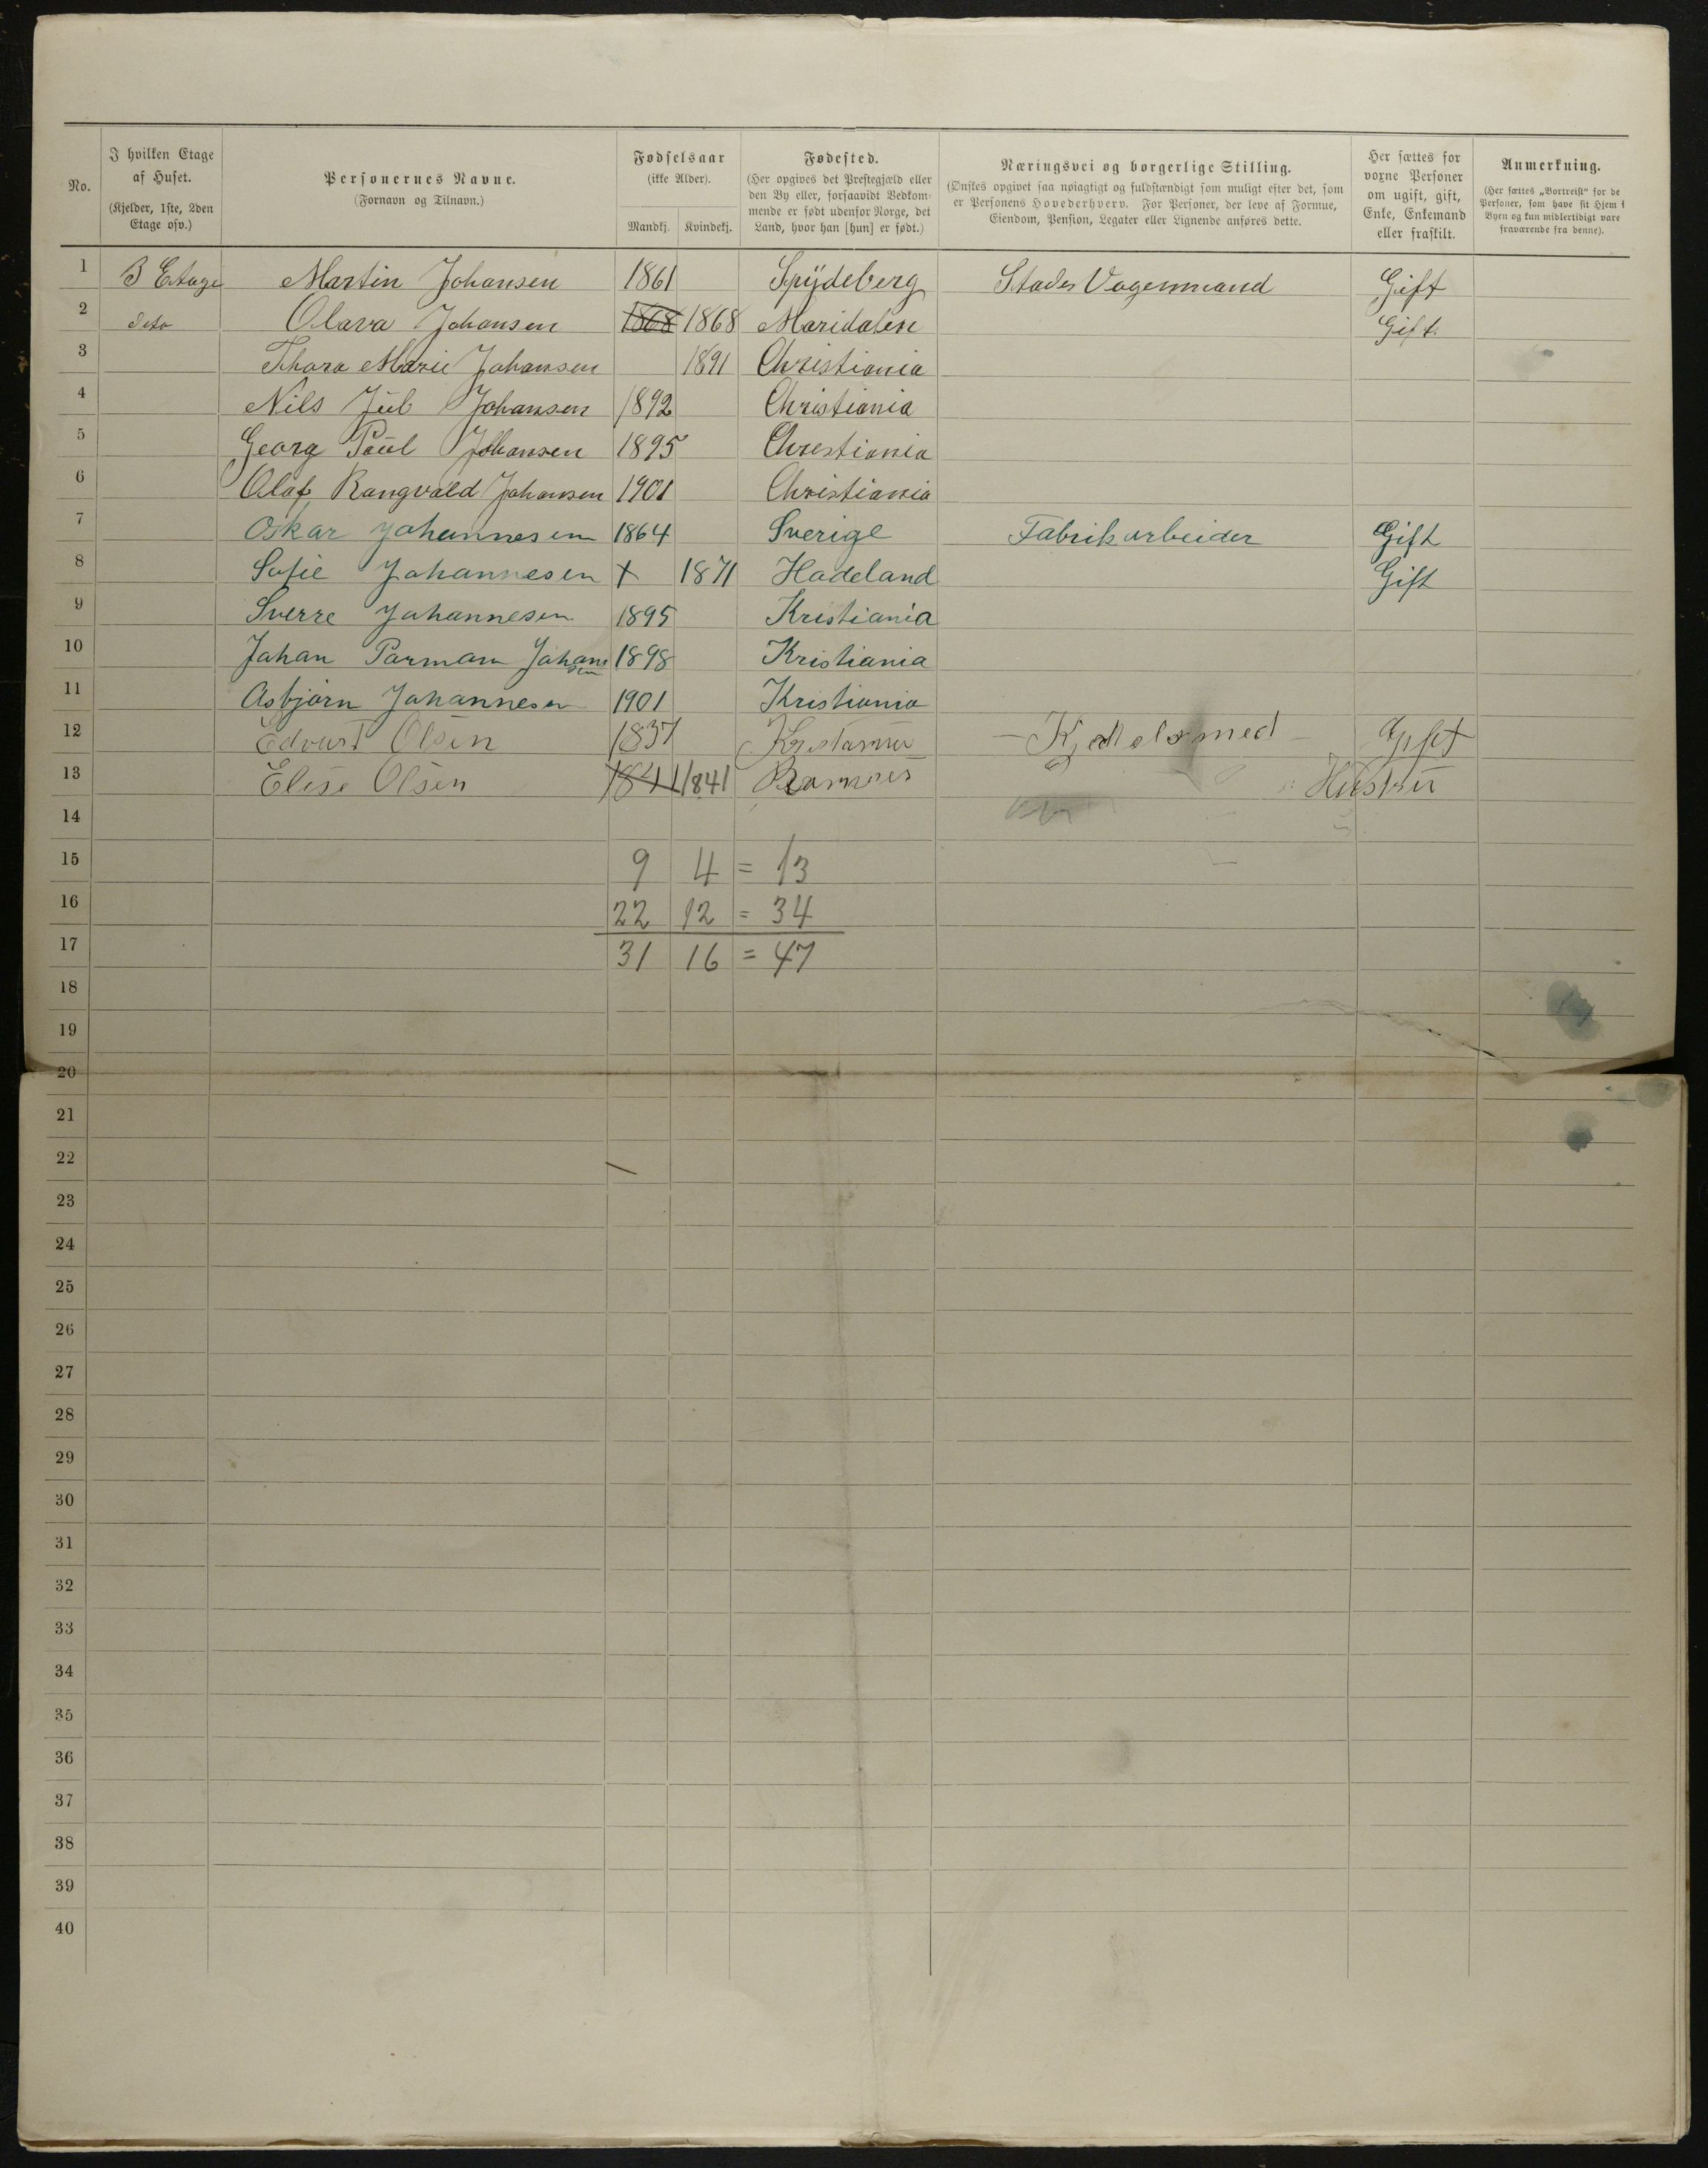 No.
I hvilken Etage af Huset.
(Kjelder, 1ste, 2den Etage osv.)
Personernes Navne.
(Fornavn og Tilnavn.)
Fødselsaar
(ikke Alder).
Mandkj. Kvindekj.
Fødested.
(Her opgives det Prestegjæld eller den By eller, forsaavidt Vedkommende er født udenfor Norge, det Land, hvor han [hun] er født.)
Næringsvei og borgerlige Stilling.
(Ønskes opgivet saa nøiagtigt og fuldstændigt som muligt efter det, som er Personens Hovederhverv. For Personer, der leve af Formue, Eiendom, Pension, Legater eller Lignende anføres dette.
Her sættes for voxne Personer om ugift, gift, Enke, Enkemand eller fraskilt.
Anmerkning.
(Her sættes „Bortreist" for de Personer, som have sit Hjem i Byen og kun midlertidigt være fraværende fra denne).
1 3 Etage Martin Johansen 1861 Spÿdeberg Stades Vognmand Gift
2 dito Olava Johansen 1868 1868 Maridalen Gift.
3 Thora Marie Johansen 1891 Christiania
4 Nils Jül Johansen 1892 Christiania
5 Georg Paül Johansen 1895 Christiania
6 Olaf Rangvald Johansen 1901 Christiania
7 Oskar Johannesen 1864 Sverige Fabrikarbeider Gift
8 Sofie Johannesen + 1871 Hadeland Gift
9 Sverre Johannesen 1895 Kristiania
10 Johan Parmann Johansen 1898 Kristiania
11 Asbjørn Johannesen 1901 Kristiania
12 Edvart Olsen 1837 Kristania – Kjedelsmed – Gift
13 Elise Olsen 1841 1841 Hüstrü
14
15 9 4 = 13
16 22 12 = 34
17 31 16 = 47
18
19
20
21
22
23
24
25
26
27
28
29
30
31
32
33
34
35
36
37
38
39
40